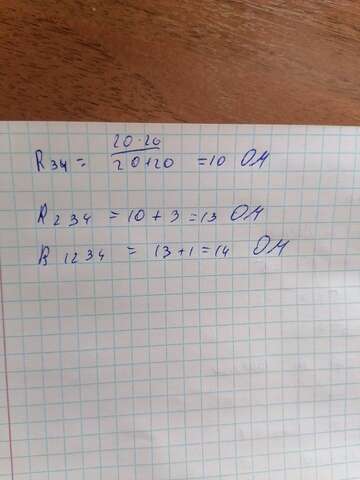 R34 = 20·20 / 20+20 = 10 Ом
R234 = 10 + 3 = 13 Ом
R1234 = 13 + 1 = 14 Ом